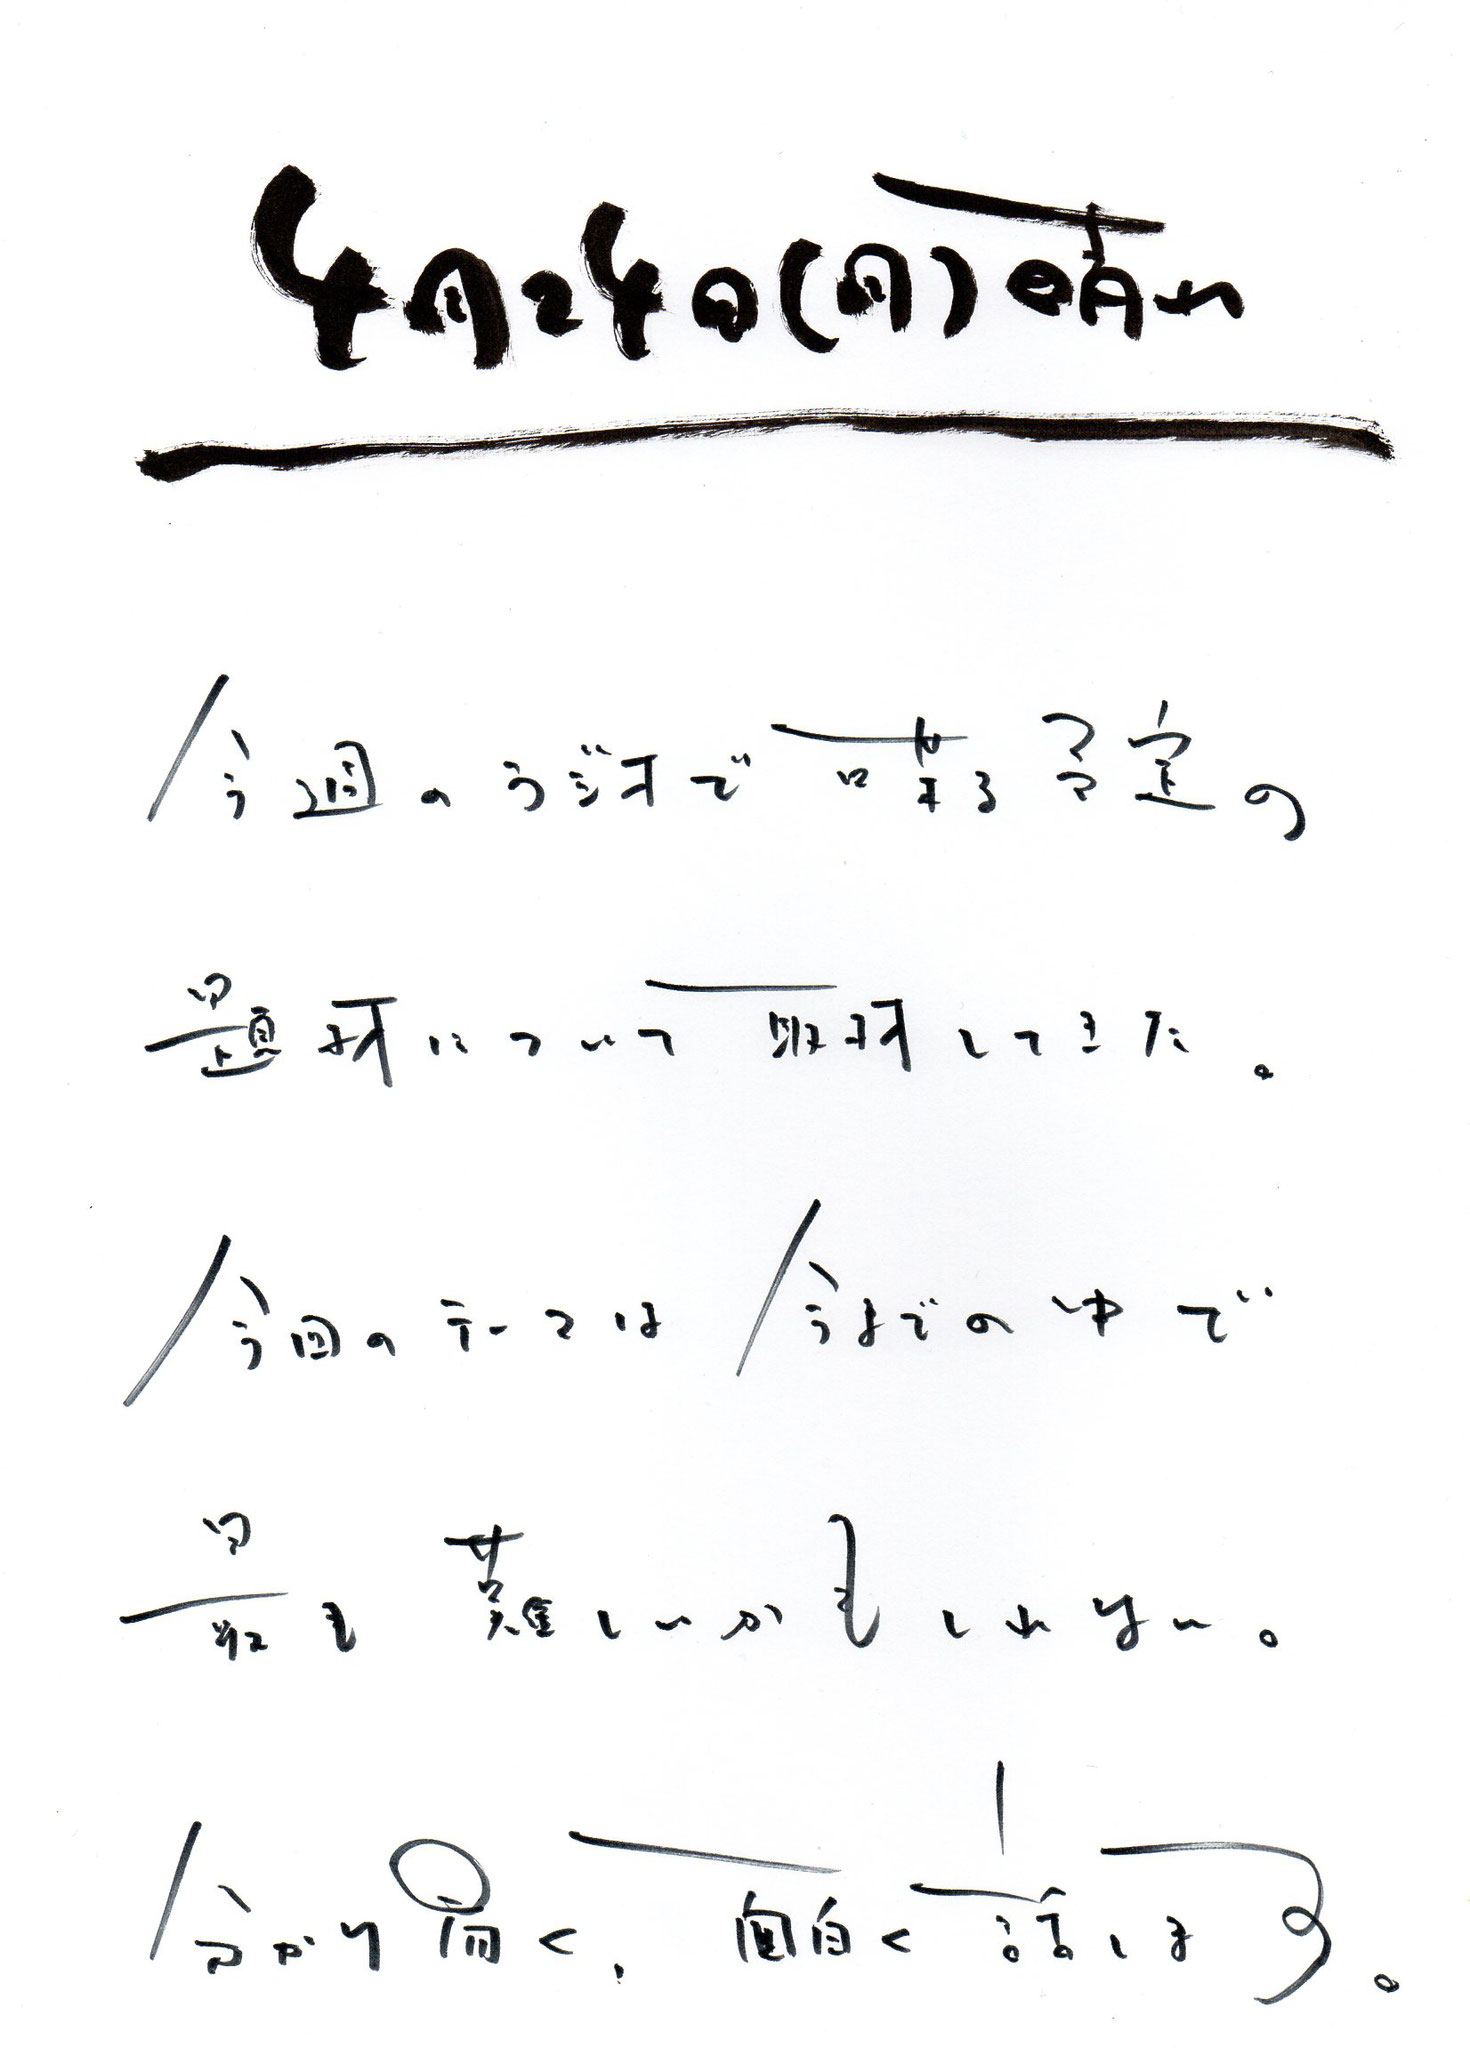 4月24日(月)晴れ
今週のラジオで喋る予定の
題材について取材してきた。
今回のテーマは今までの中で
最も難しいかもしれない。
分かり易く、面白く話します。